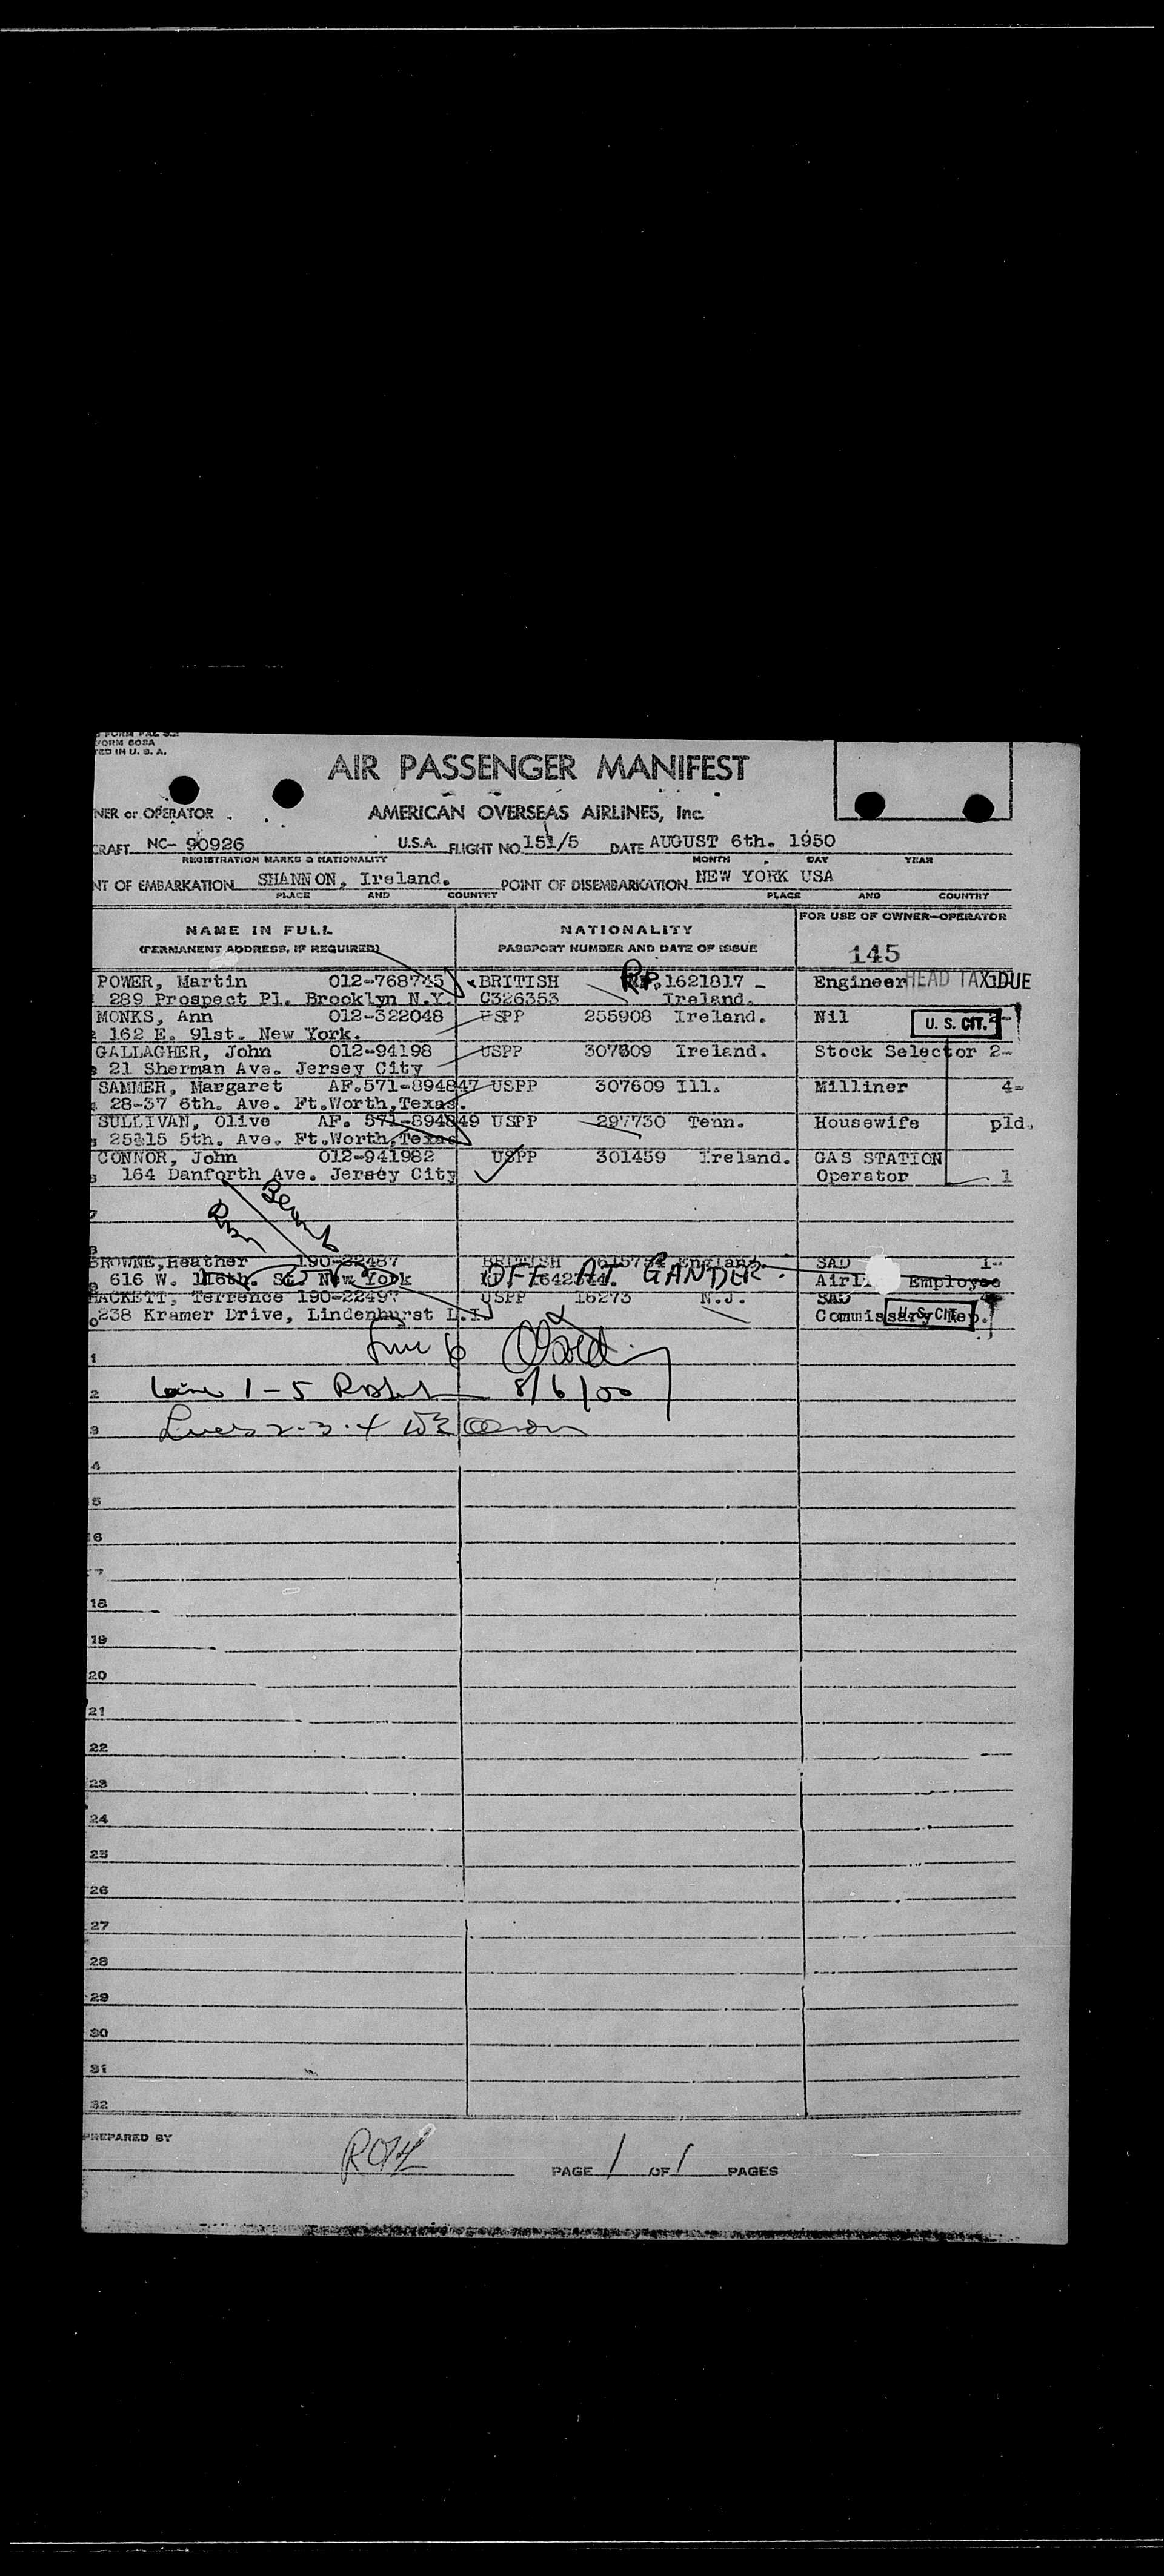 FORM 608A
TED IN U. S. A.
AIR PASSENGER MANIFEST
NER or OPERATOR AMERICAN OVERSEAS AIRLINES, Inc.
CRAFT NC- 90926 U.S.A. FLIGHT NO 151/5 DATE AUGUST 6th. 1950
REGISTRATION MARKS & NATIONALITY MONTH DAY YEAR
NT OF EMBARKATION SHANNON, Ireland. POINT OF DISEMBARKATION NEW YORK USA
PLACE AND COUNTRY PLACE AND COUNTRY
NAME IN FULL NATIONALITY FOR USE OF OWNER-OPERATOR
(PERMANENT ADDRESS, IF REQUIRED) PASSPORT NUMBER AND DATE OF ISSUE 145
POWER, Martin 012-768745 BRITISH RP. 1621817 - Engineer HEAD TAX DUE
289 Prospect Pl. Brooklyn N.Y. C326353 Ireland.
MONKS, Ann 012-322048 USPP 255908 Ireland. Nil U. S. CIT. 2-
162 E. 91st. New York.
GALLAGHER, John 012-94198 USPP 307609 Ireland. Stock Selector 2-
21 Sherman Ave. Jersey City
SAMMER, Margaret AF.571-894847 USPP 307609 Ill. Milliner 4-
28-37 6th. Ave. Ft.Worth,Texas.
SULLIVAN, Olive AF. 571-894849 USPP 297730 Tenn. Housewife pld.
25315 5th. Ave. Ft.Worth,Texas
CONNOR, John 012-941982 USPP 301459 Ireland. GAS STATION
164 Danforth Ave. Jersey City Operator 1
BROWNE,Heather 190-22487 BRITISH England. SAD 1-
616 W. 116th. St. New York OFF AT GANDER. Airline Employee
HACKETT, Terrence 190-22497 USPP 16273 N.J. SAD
238 Kramer Drive, Lindenhurst L.I. Commissary Rep. U. S. CIT.
1
Line 1-5 8/6/50
2
Lines 2-3-4
3
4
5
6
7
18
19
20
21
22
23
24
25
26
27
28
29
30
31
32
PREPARED BY
ROTH PAGE 1 OF 1 PAGES